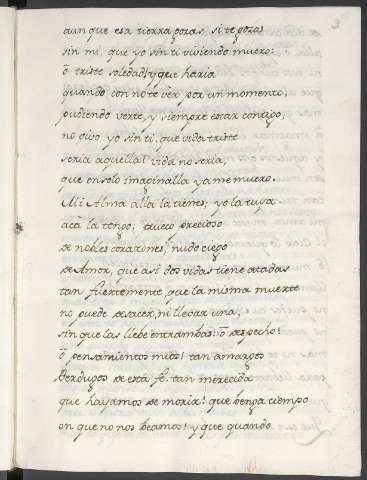 aunque esa tierra gozas, si te gozas
sin mi, que yo sin ti viviendo muero:
ô triste soledad! y que haria
quando con no te ver por un momento,
pudiendo verte, y siempre estar contigo,
no vivo yo sin ti, que vida triste
seria aquella! vida no seria,
que en solo imaginalla ya me muero.
Mi Alma allà la tienes; yo la tuya
acà la tengo; trueco precioso
de nobles corazones, nudo ciego
de Amor, que asi dos vidas tiene atadas
tan fuertemente, que la misma muerte
no puede desacer, ni llevar una,
sin que las llebe entrambas: ô despecho!
ô pensamientos mios! tan amargos
Berdugos de esta fe tan merecida
que hayamos de morir! que benga tiempo
en que no nos beamos! y que quando